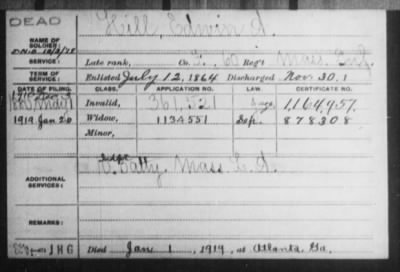 DEAD
NAME OF SOLDIER: Hill, Edwin A.
SERVICE: Late rank, Co. 60 Reg't Mass. Inf.
TERM OF SERVICE: Enlisted July 12, 1864 Discharged Nov. 30, 1
DATE OF FILING. CLASS. APPLICATION NO. LAW. CERTIFICATE NO.
Invalid, 361,521 1,164,957.
1919, Jan 20 Widow, 1134551 Sep. 878308
Minor,
ADDITIONAL SERVICES: Batty. Mass L. A.
REMARKS:
Died Jan 1, 1919, at Atlanta, Ga.